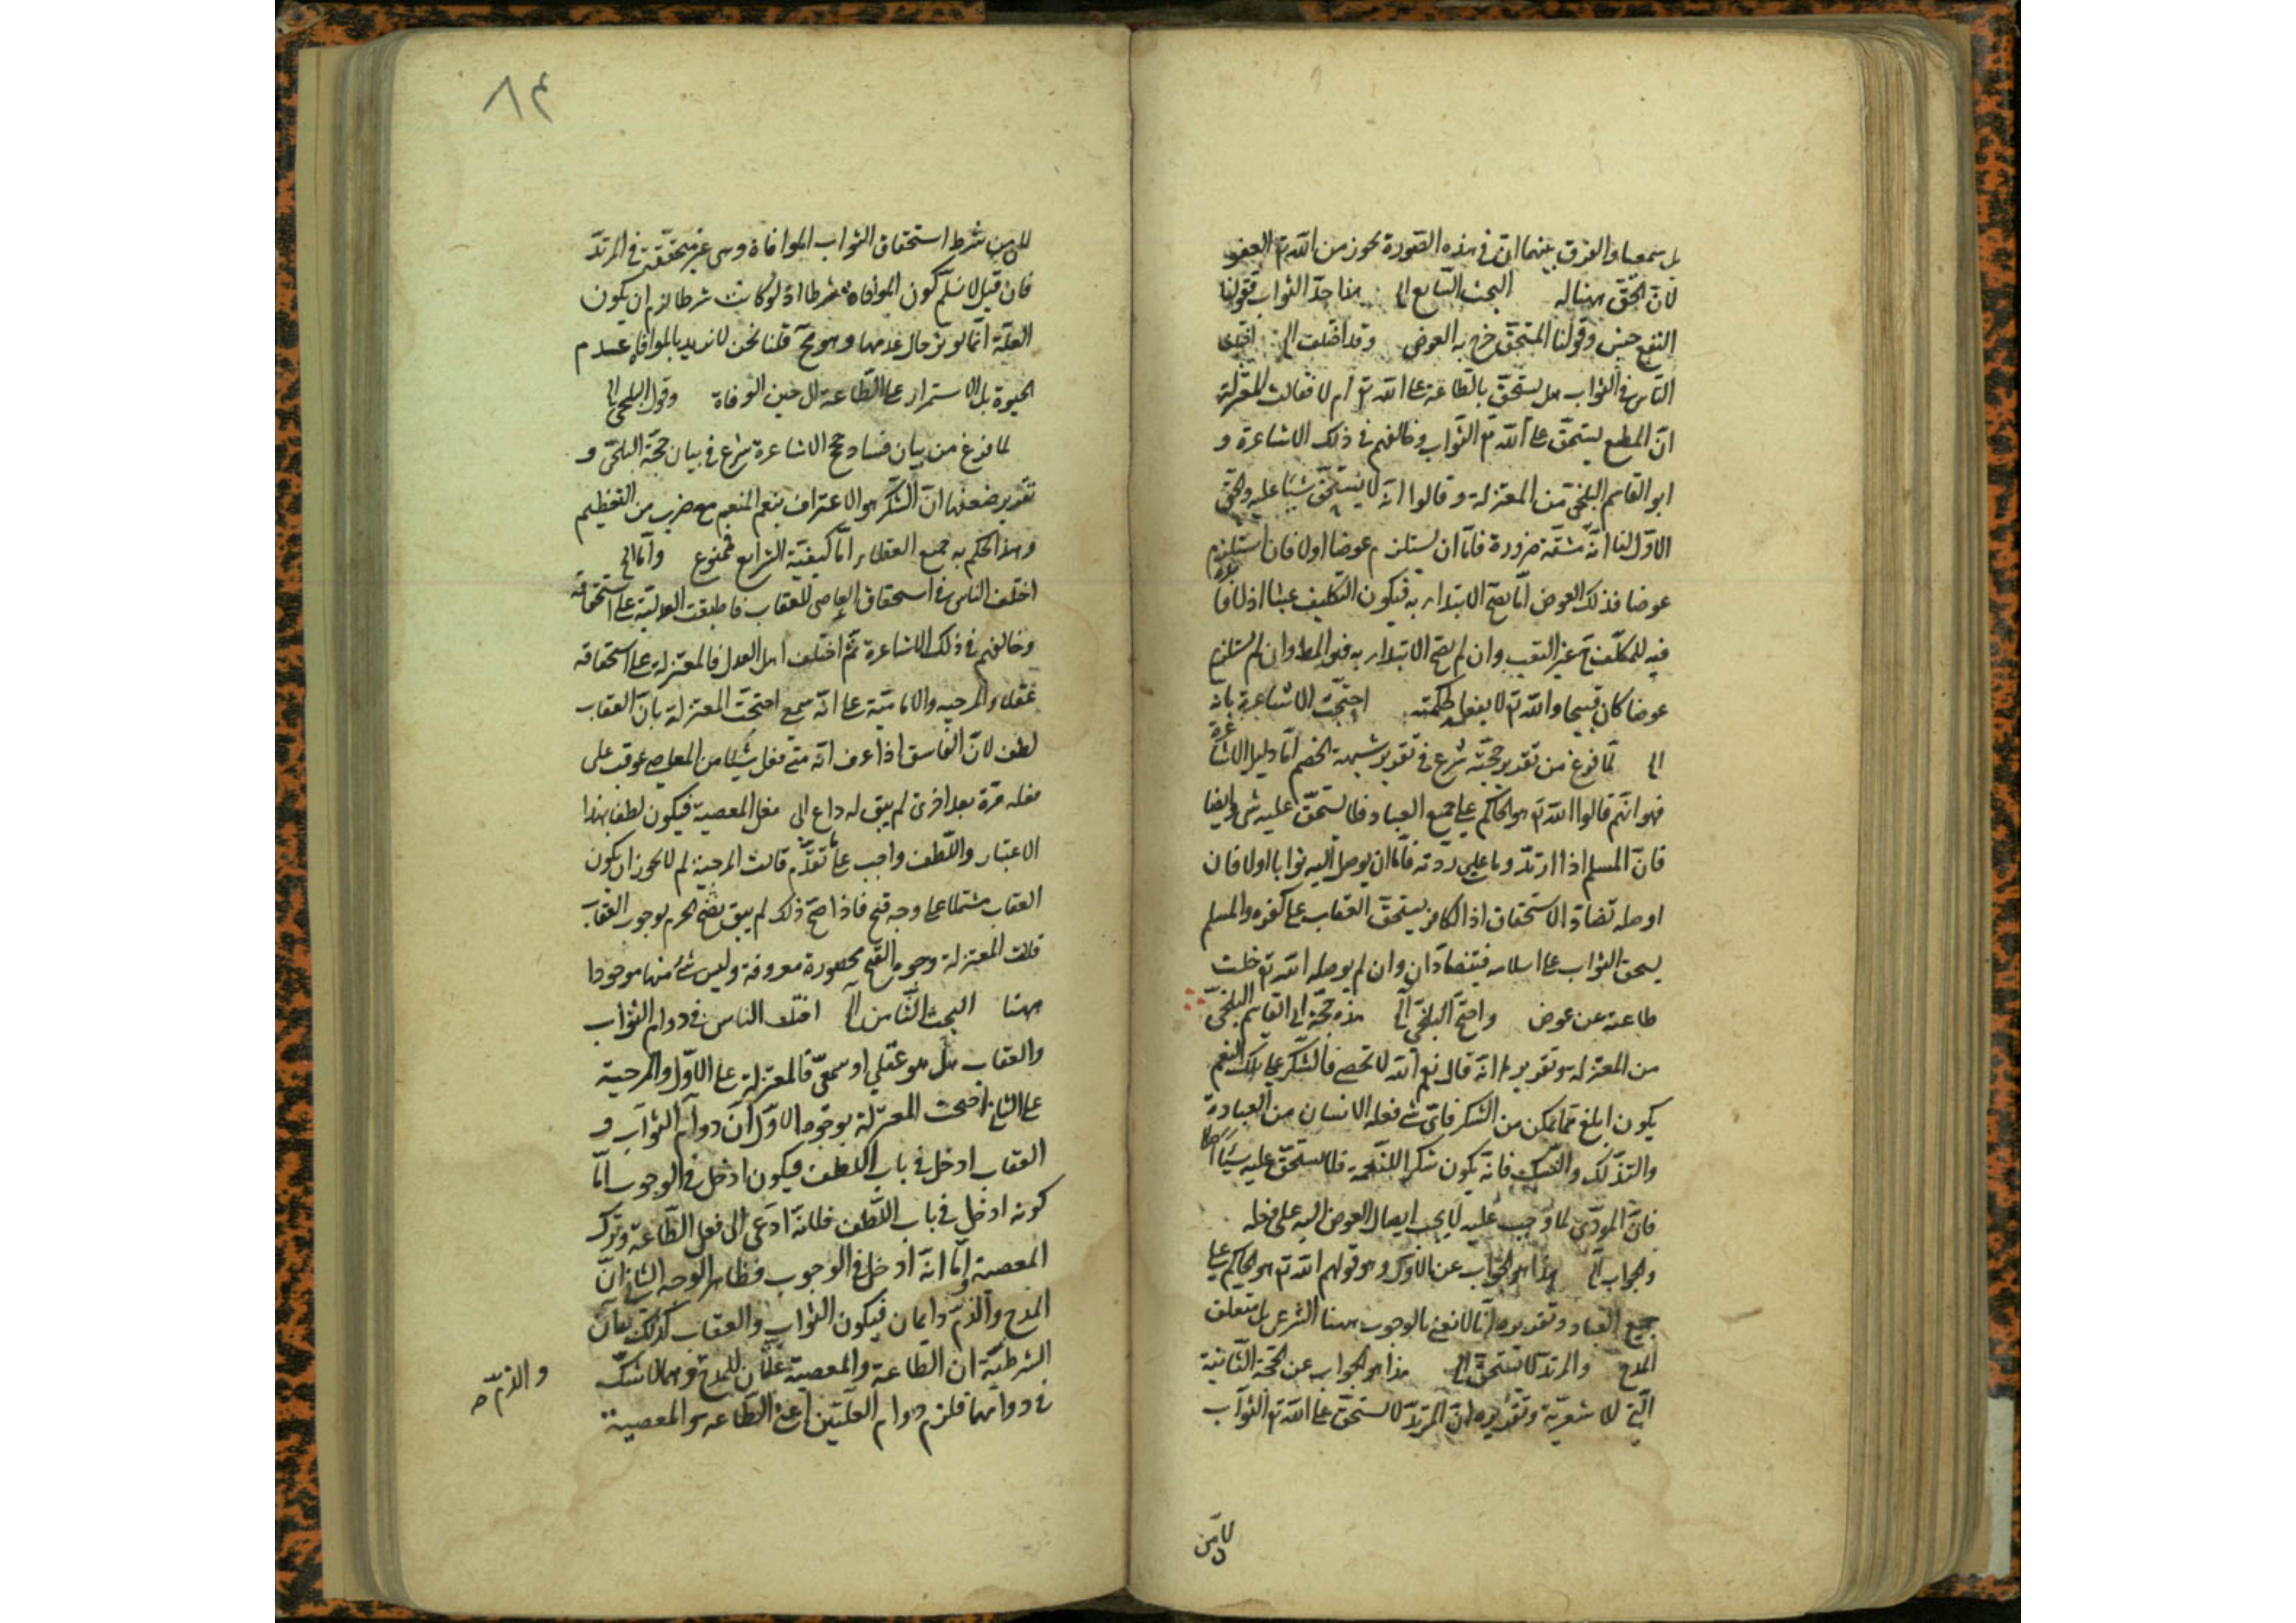 بل سمعيا والفرق بينهما ان في هذه الصورة يجوز من الله تع العفو
لان الحق هناله البحث السابع الى هذا حد الثواب فقولنا
النفع جنس وقولنا المستحق خرج به العوض وقد اختلف الى اختلف
الناس في الثواب هل يستحق بالطاعة على الله تع ام لا فقالت المعتزلة
ان المطيع يستحق على الله تع الثواب وخالفهم في ذلك الاشاعرة و
ابو القاسم البلخي من المعتزلة وقالوا انه لا يستحق شيئا عليه والحق
الاول لنا انه مشقة ضرورة فاما ان يستلزم عوضا اولا فان استلزم
عوضا فذلك العوض اما يصح الابتداء به فيكون التكليف عبثا اذ لا فائدة
فيه للمكلف ح غير التعب وان لم يصح الابتداء به فهو المط وان لم يستلزم
عوضا كان قبيحا والله تع لا يفعله لحكمته احتجت الاشاعرة بانه
الى لما فرغ من تقدير حجته شرع في تقرير شبهة الخصم اما دليل الاشاعرة
فهو انهم قالوا الله تع هو الحاكم على جميع العباد فلا يستحق عليه شئ وايضا
فان المسلم اذا ارتد ومات على ردته فاما ان يوصل اليه ثوابا اولا فان
اوصله تضاد الاستحقاق اذ الكافر يستحق العقاب على كفره والمسلم
يستحق الثواب على اسلامه فيتضادان وان لم يوصله الله تع خلت
طاعته عن عوض واحتج البلخي الى هذه حجة ابى القاسم البلخي
من المعتزلة وتقريرها انه قال نعم الله لا تحصى فالشكر على تلك النعم
يكون ابلغ مما يمكن من الشكر فاى شئ فعله الانسان من العبادة
والتذلل والتنسك فانه يكون شكرا للنعمة فلا يستحق عليه شيئا اصلا
فان المودى لما وجب عليه لا يجب ايصال العوض اليه على فعله
والجواب الى هذا هو الجواب عن الاول وهو قولهم الله تع هو الحاكم على
جميع العباد وتقديره انا لا نعنى بالوجوب ههنا الشرعى بل متعلق
المدح والمرتد لا يستحق الى هذا هو الجواب عن الحجة الثانية
التي للاشعرية وتقريره ان المرتد لا يستحق على الله تع الثواب
لان من
٨٤
لان من شرط استحقاق الثواب الموافاة وهى غير متحققة في المرتد
فان قيل لا نسلم كون الموافاة شرطا اذ لو كانت شرطا لزم ان يكون
العلة انما يوثر حال عدمها وهو مح قلنا نحن لا نريد بالموافاة عدم
الحيوة بل الاستمرار على الطاعة الى حين الوفاة وقول البلخي الى
لما فرغ من بيان فساد حجج الاشاعرة شرع في بيان حجة البلخي و
تقرير ضعفها ان الشكر هو الاعتراف بنعم المنعم مع ضرب من التعظيم
وهذا الحكم به جميع العقلاء اما كيفية الشرايع فممنوع واما الى
اختلف الناس في استحقاق العاصى للعقاب فاطبقت العدلية على استحقاقه
وخالفهم في ذلك الاشاعرة ثم اختلف اهل العدل فالمعتزلة على استحقاقه
عقلا والمرجية والامامية على انه سمعى احتجت المعتزلة بان العقاب
لطف لان الفاسق اذا عرف انه متى فعل شيئا من المعاصى عوقب على
فعله مرة بعد اخرى لم يبق له داع الى فعل المعصية فيكون لطفا بهذا
الاعتبار واللطف واجب على ما تقدم قالت المرجية لم لا يجوز ان يكون
العقاب مشتملا على وجه قبح فاذا صح ذلك لم يبق يصح الجزم بوجوب العقاب
قالت المعتزلة وجوه القبح محصورة معروفة وليس شئ منها موجودا
ههنا البحث الثامن الى اختلف الناس في دوام الثواب
والعقاب هل هو عقلي او سمعى فالمعتزلة على الاول والمرجية
على الثانى احتجت المعتزلة بوجوه الاول ان دوام الثواب و
العقاب ادخل في باب اللطف فيكون ادخل في الوجوب اما
كونه ادخل في باب اللطف فلانه ادعى الى فعل الطاعة وترك
المعصية واما انه ادخل في الوجوب فظاهر الوجه الثانى ان
المدح والذم دايمان فيكون الثواب والعقاب كذلك بيان
الشرطية ان الطاعة والمعصية علتان للمدح وهما لا شك
والذم صح
في دوامهما فلزم دوام العلتين اعنى الطاعة والمعصية